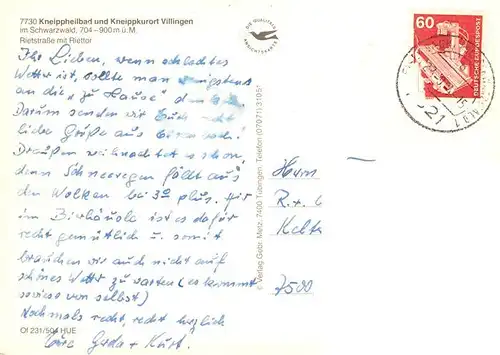 7730 Kneippheilbad und Kneippkurort Villingen
im Schwarzwald, 704–900 m ü. M.
Rietstraße mit Riettor
Ihr Lieben, wenn schlechtes
Wetter ist, sollte man wenigstens
an die „zu Hause" denken.
Darum senden wir Euch recht
liebe Grüße aus
Draußen weihnachtet es schon,
denn Schneeregen fällt aus
den Wolken bei 3° plus. Hir
im Bierhäusle ist es dafür
recht gemütlich u. somit
brauchen wir auch nicht auf
schönes Wetter zu warten (es kommt
sowieso von selbst)
Nochmals recht, recht herzlich
Eure Gerda + Kurt.
Of 231/504 HUE
DIE QUALITÄTS
ANSICHTSKARTE
© Verlag Gebr. Metz, 7400 Tübingen, Telefon (07071) 31051
60
DEUTSCHE BUNDESPOST
21
Herrn
R. + C
Kelter
7500